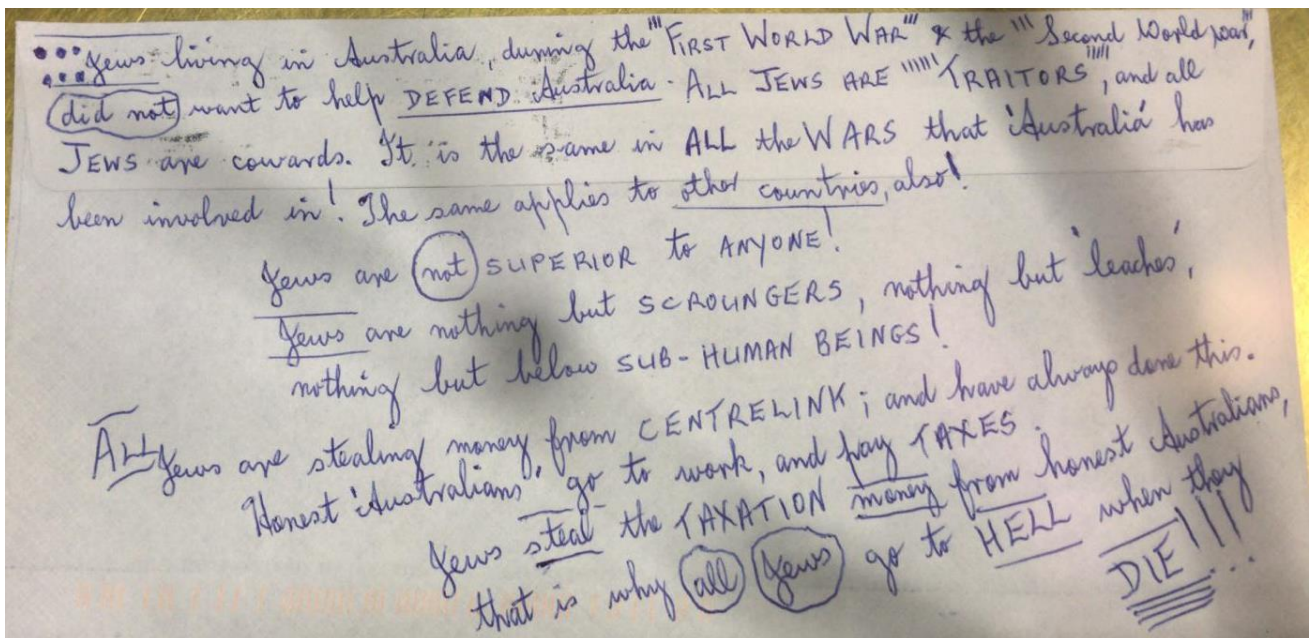 Jews living in Australia, during the "FIRST WORLD WAR" & the "Second World War",
did not want to help DEFEND Australia. ALL JEWS ARE "TRAITORS", and all
JEWS are cowards. It is the same in ALL the WARS that 'Australia' has
been involved in! The same applies to other countries, also!
Jews are not SUPERIOR to ANYONE!
Jews are nothing but SCROUNGERS, nothing but 'leaches',
nothing but below SUB-HUMAN BEINGS!
ALL Jews are stealing money from CENTRELINK; and have always done this.
Honest 'Australians', go to work, and pay TAXES.
Jews steal the TAXATION money from honest Australians,
that is why all Jews go to HELL when they
DIE!!!...